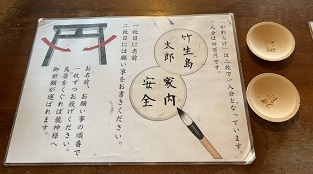 「かわらけ」は二枚で一人分となっています。
一人分は四百円です。
竹生島
太郎
家内
安全
一枚目に名前
二枚目には願い事をお書きください。
お名前、お願い事の順番で
一枚ずつお投げください。
鳥居をくぐれば龍神様へ
御祈願が運ばれます。